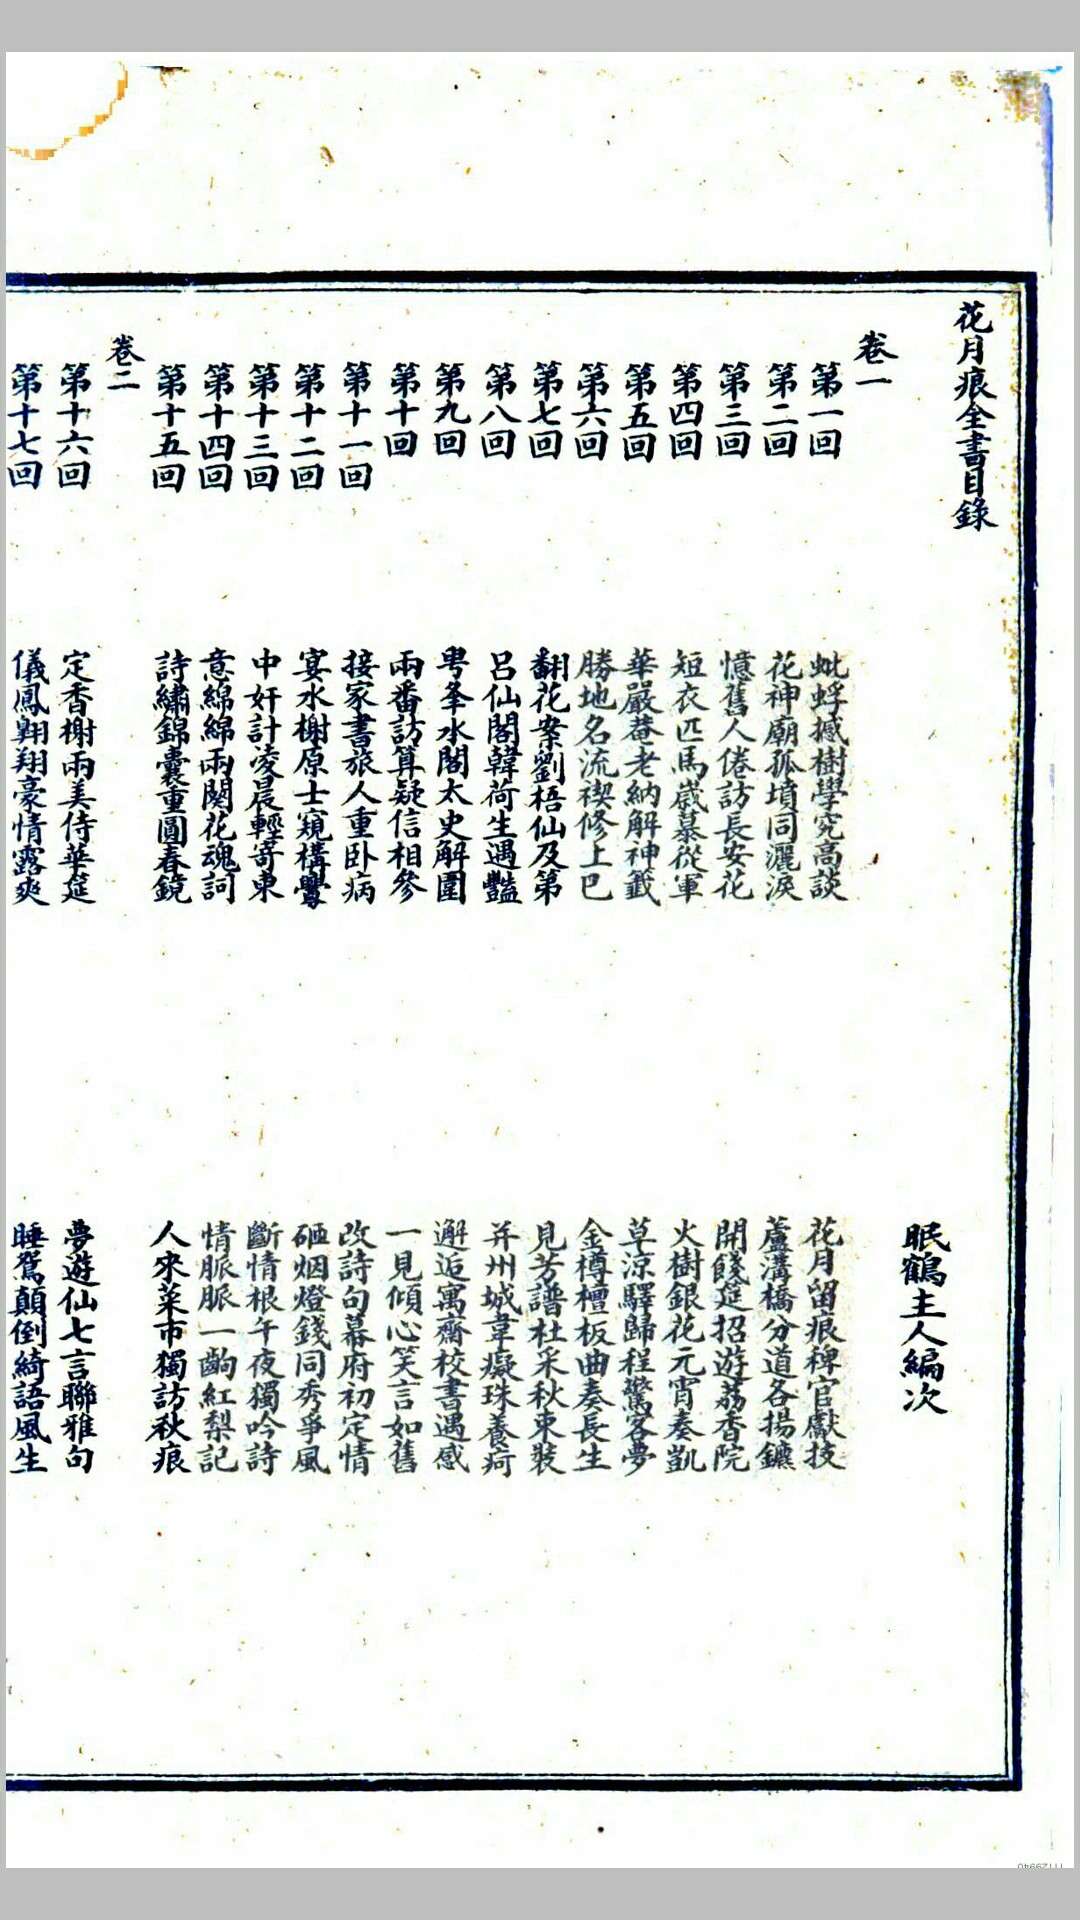 花月痕全書目錄
眠鶴主人編次
卷一
第一回 蚍蜉撼樹學究高談 花月留痕稗官獻技
第二回 花神廟孤墳同灑淚 蘆溝橋分道各揚鑣
第三回 憶舊人倦訪長安花 開餞筵招遊荔香院
第四回 短衣匹馬歲暮從軍 火樹銀花元宵奏凱
第五回 華嚴菴老衲解神籤 草涼驛歸程驚客夢
第六回 勝地名流禊修上巳 金樽檀板曲奏長生
第七回 翻花案劉梧仙及第 見芳譜杜采秋束裝
第八回 呂仙閣韓荷生遇豔 并州城韋癡珠養疴
第九回 甹夆水閣太史解圍 邂逅寓齋校書遇感
第十回 兩番訪算疑信相參 一見傾心笑言如舊
第十一回 接家書旅人重卧病 改詩句幕府初定情
第十二回 宴水榭原士窺構釁 砸烟燈錢同秀爭風
第十三回 中奸計凌晨輕寄柬 斷情根午夜獨吟詩
第十四回 意綿綿兩闋花魂詞 情脈脈一齣紅梨記
第十五回 詩繡錦囊重圓春鏡 人來菜市獨訪秋痕
卷二
第十六回 定香榭兩美侍華筵 夢遊仙七言聯雅句
第十七回 儀鳳翱翔豪情露爽 睡鴛顛倒綺語風生